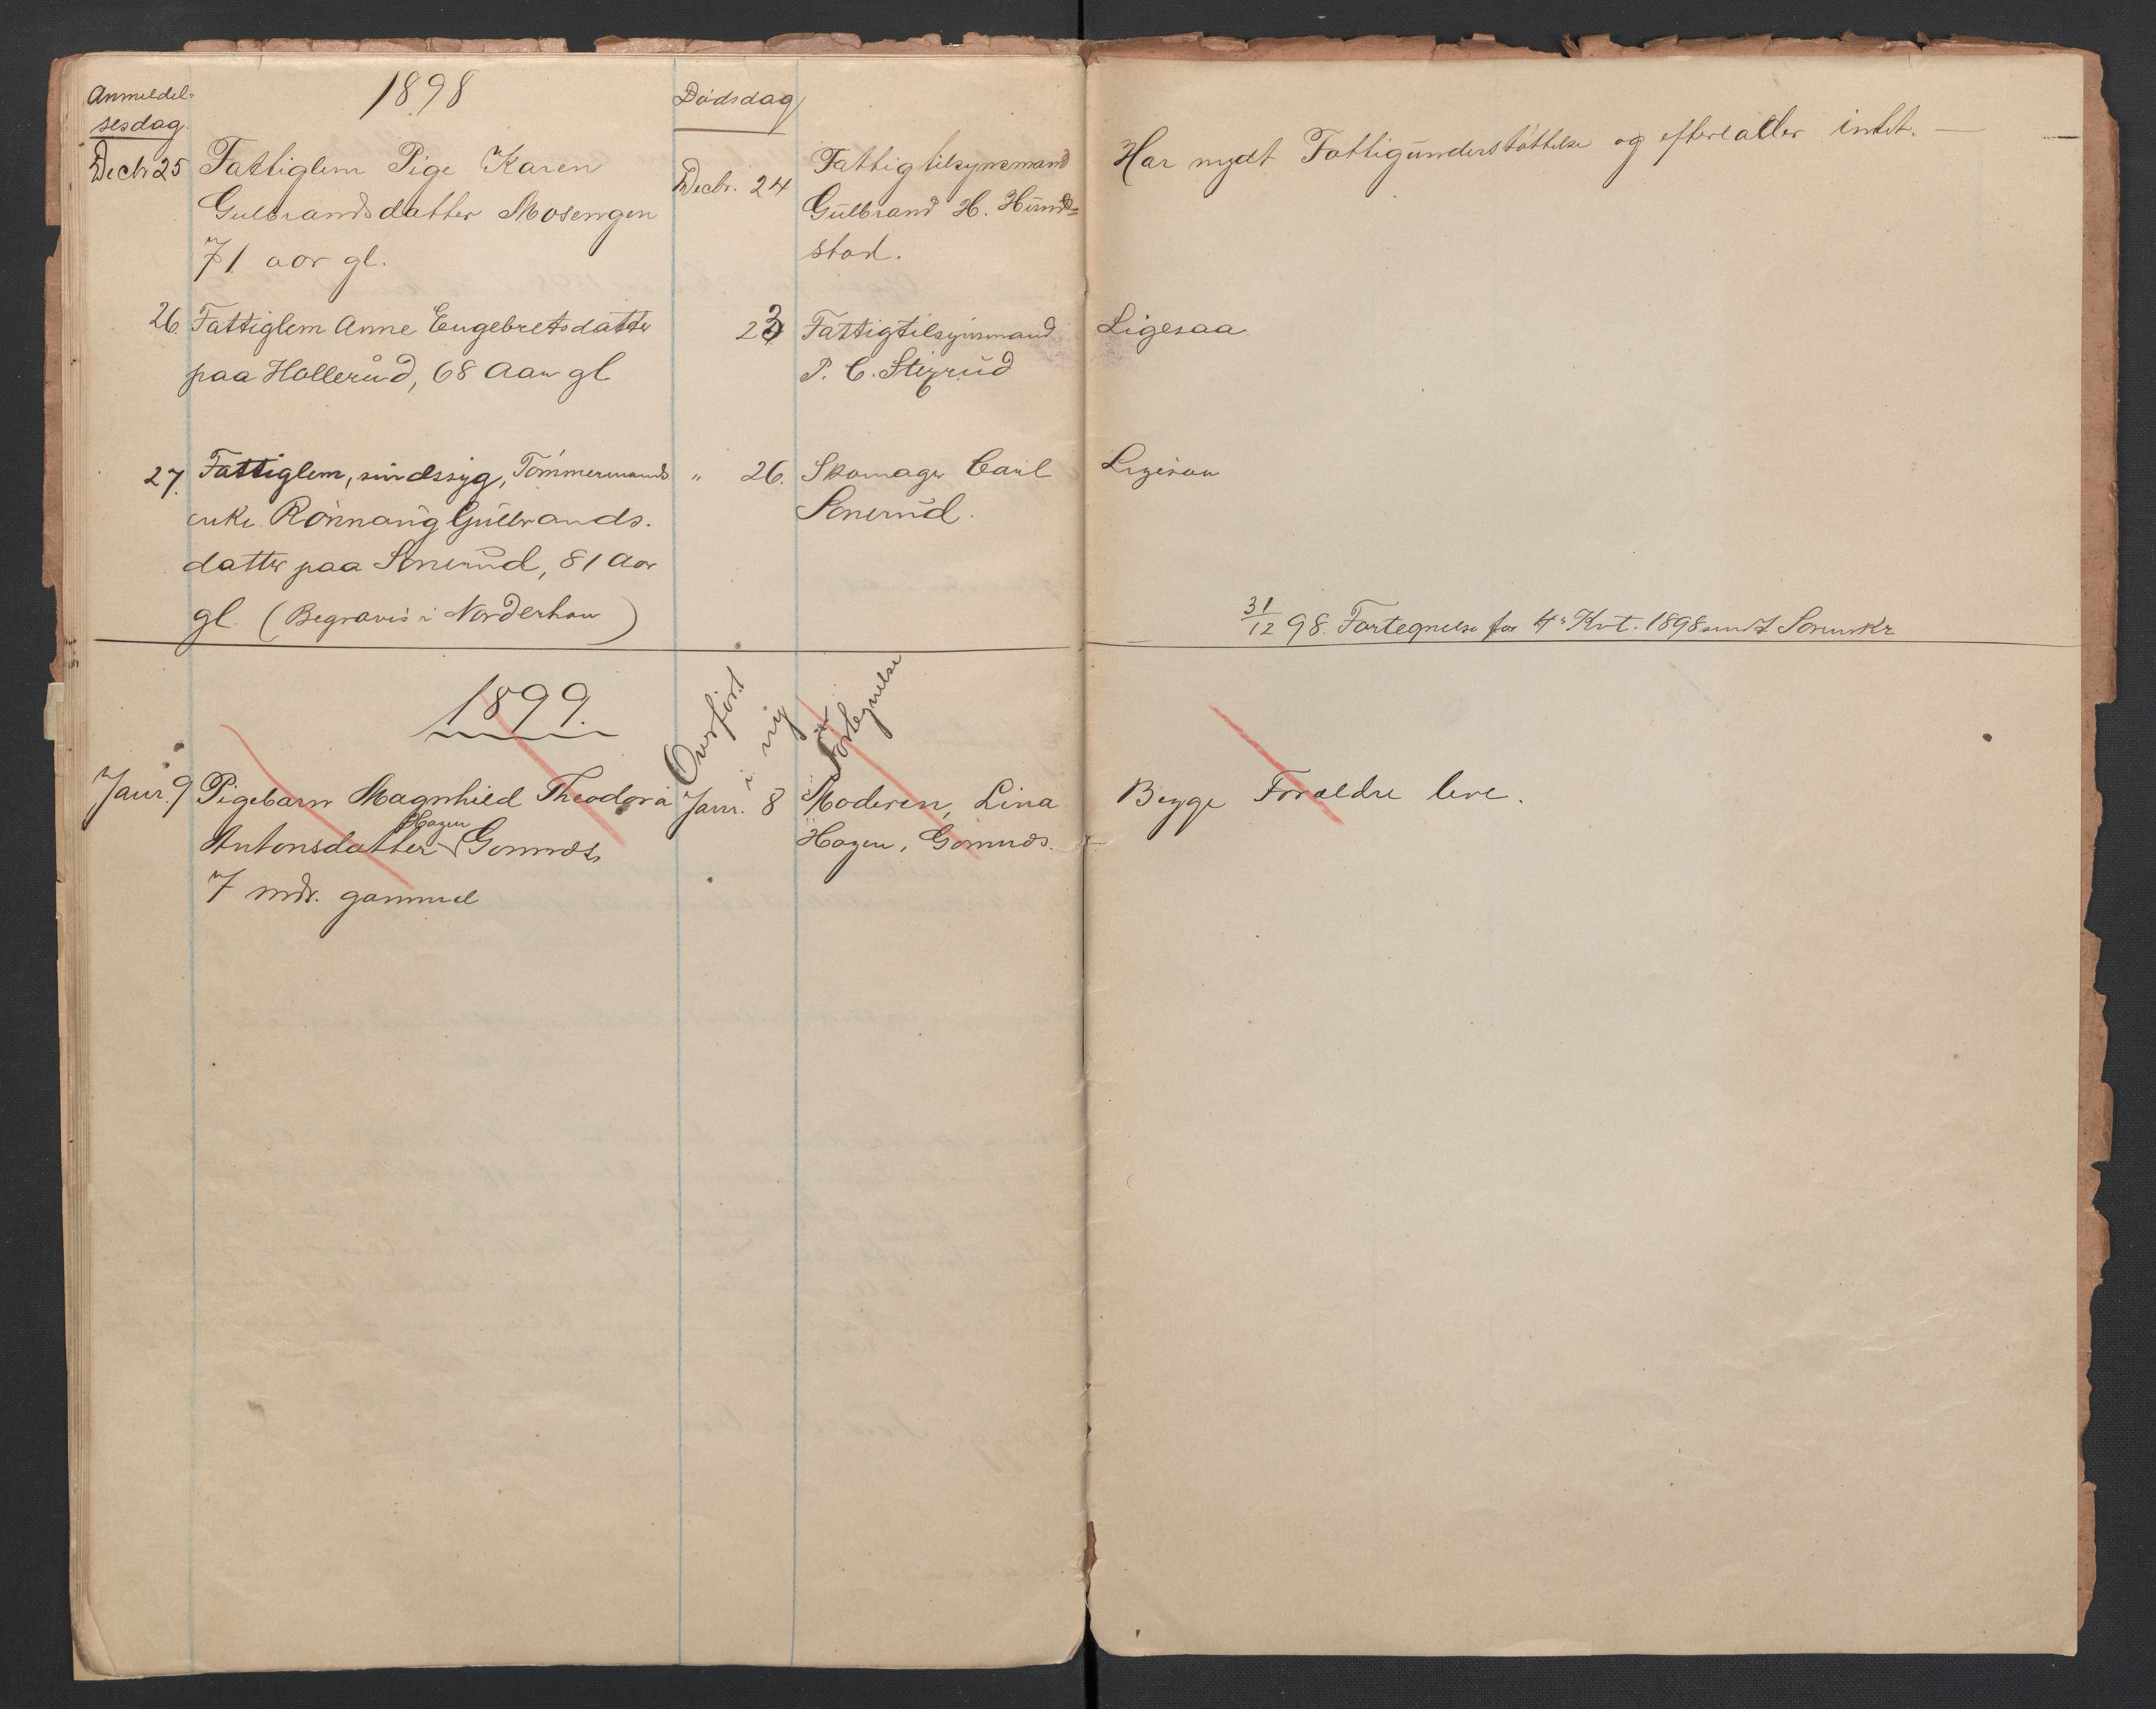 Anmeldel-
sesdag.
1898
Dödsdag
Decbr 25
Fattiglem Pige Karen
Gulbrandsdatter Mosengen
71 aar gl.
Decbr. 24
Fattigtilsynsmand
Gülbrand H. Hünd=
stad.
Har nydt Fattigünderstöttelse og efterlader intet. —
26.
Fattiglem Anne Engebretsdatter
paa Hollerüd, 68 Aar gl
23
Fattigtilsynsmand
P. C. Stixrüd
Ligesaa
27.
Fattiglem, sindssyg, Tömmermands
enke Rönnaug Gülbrands-
datter paa Sonerüd, 81 Aar
gl. (Begraves i Norderhov)
" 26.
Skomager Carl
Sonerüd.
Ligesaa
31/12 98. Fortegnelse for 4de Kvt. 1898 sendt Sorenskr
1899.
Overfört
i ny
Fortegnelse
Janr. 9
Pigebarn Magnhild Theodora
Antonsdatter Hagen
7 mdr. gammel
Janr. 8
Moderen, Lina
Hagen,
Begge Forældre leve.